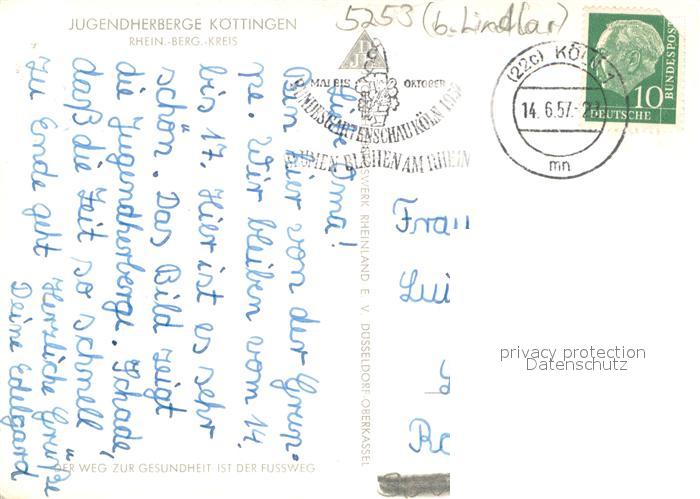 JUGENDHERBERGE KOTTINGEN
RHEIN.-BERG.-KREIS
5253 (b. Lindlar)
DJH
MAI BIS OKTOBER
BUNDESGARTENSCHAU KÖLN 1957
BLUMEN BLÜHEN AM RHEIN
(22c) KÖLN 1
14.6.57.-2
mn
10
DEUTSCHE
BUNDESPOST
Liebe Oma!
Bin hier von der Grup-
pe. Wir bleiben vom 14.
bis 17. Hier ist es sehr
schön. Das Bild zeigt
die Jugendherberge. Schade,
daß die Zeit so schnell
zu Ende geht
Herzliche Grüße
Deine Edelgard
SWERK RHEINLAND E. V. DÜSSELDORF-OBERKASSEL
Frau
Lui
Ro
DER WEG ZUR GESUNDHEIT IST DER FUSSWEG
privacy protection
Datenschutz